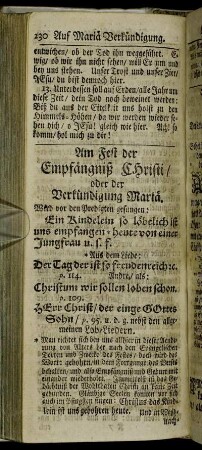 230 Auf Mariä Verkündigung.
entwichen/ ob der Tod ihn weggeführt.
wig/ ob wir ihn nicht sehen/ will Er um und
bey uns stehen. Unser Trost und unser Zier/
JEsu/ du bist dennoch hier.
13. Unterdessen soll auf Erden/ alle Jahr um
diese Zeit/ dein Tod noch beweinet werden:
Biß du aus der Eitelkeit uns holst zu der
Himmels-Höhen/ da wir werden wieder se-
hen dich/ o JEsu! gleich wie hier. Ach! so
komm/ hol mich zu dir!
Am Fest der
Empfängniß Christi/
oder der
Verkündigung Mariä.
Wird vor den Predigten gesungen:
Ein Kindelein so löbelich ist
uns empfangen * heute von einer
Jungfrau u. s. f.
Aus dem Liede:
Der Tag der ist so freudenreich ꝛc.
p. 114. Andre/ als:
Christum wir sollen loben schon.
p. 109.
HErr Christ/ der einge GOttes
Sohn/ p. 95. u. d. g. nebst den allge-
meinen Lob-Liedern.
* Man richtet sich bey uns allhier in dieser Aende-
rung von Alters her nach den Evangelischen
Texten und Zwecke des Festes/ doch wird das
Wort: gebohrn/ in dem Fortgange des Lieds
behalten/ und also Empfängniß und Geburt mit
einander wiederholet.
gefunden. Gläubige Seelen können vor sich
auch im Singen sagen: Christus das Kinde-
lein ist uns gebohren heute. Und in
nach-